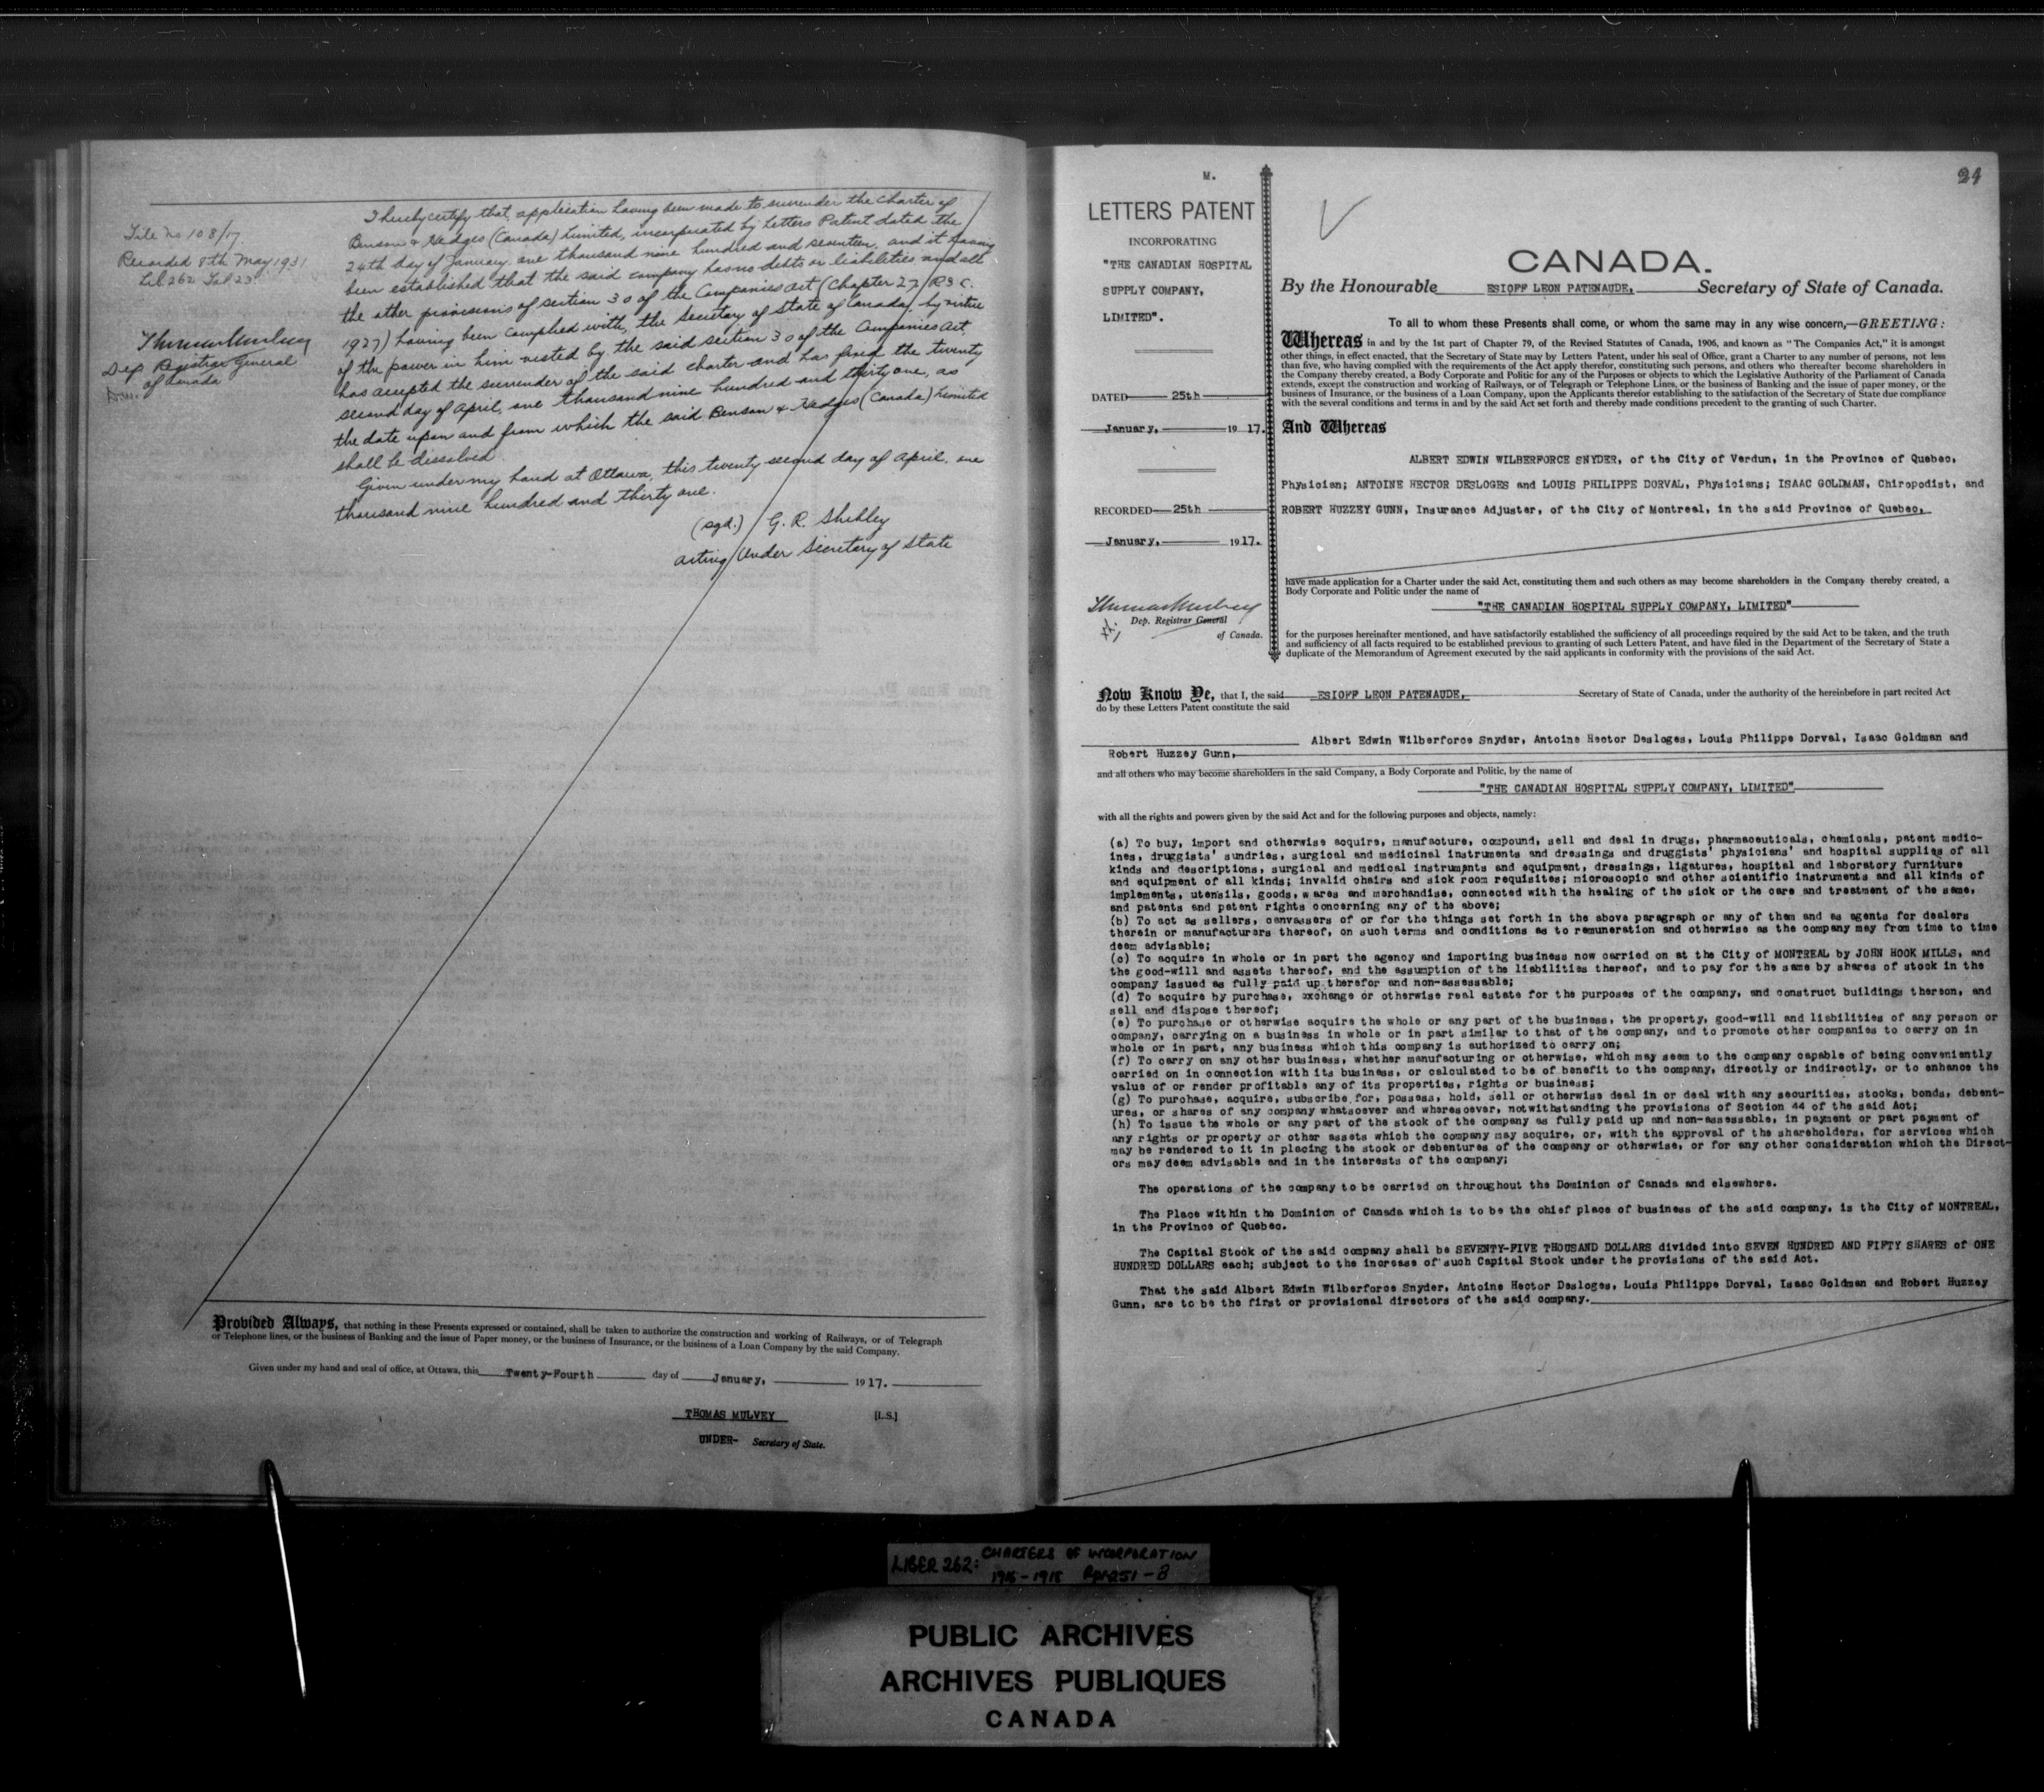 File No 108/17
Recorded 8th May 1931
Lib 262 Fol 23
Thomas Mulvey
Dep Registrar General
of Canada
I hereby certify that, application having been made to surrender the charter of
Benson & Hedges (Canada) Limited, incorporated by Letters Patent dated the
24th day of January, one thousand nine hundred and seventeen, and it having
been established that the said company has no debts or liabilities and all
the other provisions of section 30 of the Companies Act (Chapter 27 R S C.
1927) having been complied with, the Secretary of State of Canada, by virtue
of the power in him vested by the said section 30 of the Companies Act,
has accepted the surrender of the said charter and has fixed the twenty
second day of April, one thousand nine hundred and thirty one, as
the date upon and from which the said Benson & Hedges (Canada) Limited
shall be dissolved.
Given under my hand at Ottawa, this twenty second day of April, one
thousand nine hundred and thirty one.
(sgd.) G. R. Shibley
Acting Under Secretary of State
Provided Always, that nothing in these Presents expressed or contained, shall be taken to authorize the construction and working of Railways, or of Telegraph
or Telephone lines, or the business of Banking and the issue of Paper money, or the business of Insurance, or the business of a Loan Company by the said Company.
Given under my hand and seal of office, at Ottawa, this Twenty-Fourth day of January, 1917.
THOMAS MULVEY [L.S.]
UNDER- Secretary of State.
24
M.
LETTERS PATENT
INCORPORATING
"THE CANADIAN HOSPITAL
SUPPLY COMPANY,
LIMITED".
DATED 25th
January, 1917.
RECORDED 25th
January, 1917.
Thomas Mulvey
Dep. Registrar General
of Canada.
CANADA.
By the Honourable ESIOFF LEON PATENAUDE, Secretary of State of Canada.
To all to whom these Presents shall come, or whom the same may in any wise concern,—GREETING:
Whereas in and by the 1st part of Chapter 79, of the Revised Statutes of Canada, 1906, and known as "The Companies Act," it is amongst
other things, in effect enacted, that the Secretary of State may by Letters Patent, under his seal of Office, grant a Charter to any number of persons, not less
than five, who having complied with the requirements of the Act apply therefor, constituting such persons, and others who thereafter become shareholders in
the Company thereby created, a Body Corporate and Politic for any of the Purposes or objects to which the Legislative Authority of the Parliament of Canada
extends, except the construction and working of Railways, or of Telegraph or Telephone Lines, or the business of Banking and the issue of paper money, or the
business of Insurance, or the business of a Loan Company, upon the Applicants therefor establishing to the satisfaction of the Secretary of State due compliance
with the several conditions and terms in and by the said Act set forth and thereby made conditions precedent to the granting of such Charter.
And Whereas
ALBERT EDWIN WILBERFORCE SNYDER, of the City of Verdun, in the Province of Quebec,
Physician; ANTOINE HECTOR DESLOGES and LOUIS PHILIPPE DORVAL, Physicians; ISAAC GOLDMAN, Chiropodist, and
ROBERT HUZZEY GUNN, Insurance Adjuster, of the City of Montreal, in the said Province of Quebec,
have made application for a Charter under the said Act, constituting them and such others as may become shareholders in the Company thereby created, a
Body Corporate and Politic under the name of
"THE CANADIAN HOSPITAL SUPPLY COMPANY, LIMITED"
for the purposes hereinafter mentioned, and have satisfactorily established the sufficiency of all proceedings required by the said Act to be taken, and the truth
and sufficiency of all facts required to be established previous to granting of such Letters Patent, and have filed in the Department of the Secretary of State a
duplicate of the Memorandum of Agreement executed by the said applicants in conformity with the provisions of the said Act.
Now Know Ye, that I, the said ESIOFF LEON PATENAUDE, Secretary of State of Canada, under the authority of the hereinbefore in part recited Act
do by these Letters Patent constitute the said
Albert Edwin Wilberforce Snyder, Antoine Hector Desloges, Louis Philippe Dorval, Isaac Goldman and
Robert Huzzey Gunn,
and all others who may become shareholders in the said Company, a Body Corporate and Politic, by the name of
"THE CANADIAN HOSPITAL SUPPLY COMPANY, LIMITED"
with all the rights and powers given by the said Act and for the following purposes and objects, namely:
(a) To buy, import and otherwise acquire, manufacture, compound, sell and deal in drugs, pharmaceuticals, chemicals, patent medic-
ines, druggists' sundries, surgical and medicinal instruments and dressings and druggists' physicians' and hospital supplies of all
kinds and descriptions, surgical and medical instruments and equipment, dressings, ligatures, hospital and laboratory furniture
and equipment of all kinds; invalid chairs and sick room requisites; microscopic and other scientific instruments and all kinds of
implements, utensils, goods, wares and merchandise, connected with the healing of the sick or the care and treatment of the same,
and patents and patent rights concerning any of the above;
(b) To act as sellers, canvassers of or for the things set forth in the above paragraph or any of them and as agents for dealers
therein or manufacturers thereof, on such terms and conditions as to remuneration and otherwise as the company may from time to time
deem advisable;
(c) To acquire in whole or in part the agency and importing business now carried on at the City of MONTREAL by JOHN HOOK MILLS, and
the good-will and assets thereof, and the assumption of the liabilities thereof, and to pay for the same by shares of stock in the
company issued as fully paid up therefor and non-assessable;
(d) To acquire by purchase, exchange or otherwise real estate for the purposes of the company, and construct buildings thereon, and
sell and dispose thereof;
(e) To purchase or otherwise acquire the whole or any part of the business, the property, good-will and liabilities of any person or
company, carrying on a business in whole or in part similar to that of the company, and to promote other companies to carry on in
whole or in part, any business which this company is authorized to carry on;
(f) To carry on any other business, whether manufacturing or otherwise, which may seem to the company capable of being conveniently
carried on in connection with its business, or calculated to be of benefit to the company, directly or indirectly, or to enhance the
value of or render profitable any of its properties, rights or business;
(g) To purchase, acquire, subscribe for, possess, hold, sell or otherwise deal in or deal with any securities, stocks, bonds, debent-
ures, or shares of any company whatsoever and wheresoever, notwithstanding the provisions of Section 44 of the said Act;
(h) To issue the whole or any part of the stock of the company as fully paid up and non-assessable, in payment or part payment of
any rights or property or other assets which the company may acquire, or, with the approval of the shareholders, for services which
may be rendered to it in placing the stock or debentures of the company or otherwise, or for any other consideration which the Direct-
ors may deem advisable and in the interests of the company;
The operations of the company to be carried on throughout the Dominion of Canada and elsewhere.
The Place within the Dominion of Canada which is to be the chief place of business of the said company, is the City of MONTREAL,
in the Province of Quebec.
The Capital Stock of the said company shall be SEVENTY-FIVE THOUSAND DOLLARS divided into SEVEN HUNDRED AND FIFTY SHARES of ONE
HUNDRED DOLLARS each; subject to the increase of such Capital Stock under the provisions of the said Act.
That the said Albert Edwin Wilberforce Snyder, Antoine Hector Desloges, Louis Philippe Dorval, Isaac Goldman and Robert Huzzey
Gunn, are to be the first or provisional directors of the said company.
LIBER 262: CHARTERS OF INCORPORATION
1916-1918
PUBLIC ARCHIVES
ARCHIVES PUBLIQUES
CANADA